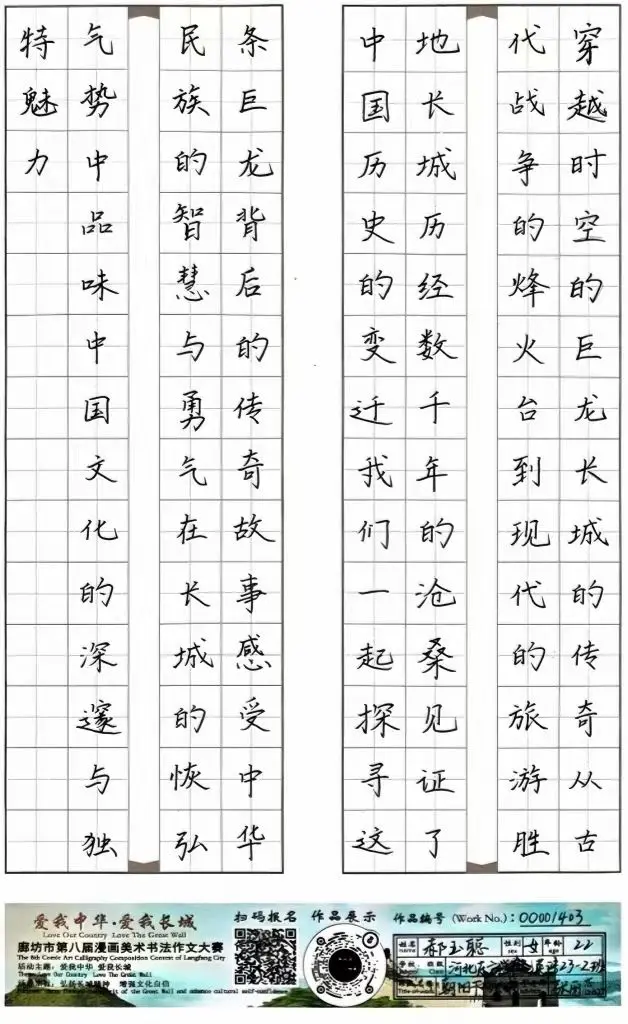 穿越时空的巨龙长城的传奇从古
代战争的烽火台到现代的旅游胜
地长城历经数千年的沧桑见证了
中国历史的变迁我们一起探寻这
条巨龙背后的传奇故事感受中华
民族的智慧与勇气在长城的恢弘
气势中品味中国文化的深邃与独
特魅力
爱我中华·爱我长城
Love Our Country Love The Great Wall
廊坊市第八届漫画美术书法作文大赛
The 8th Comic Art Calligraphy Composition Contest of Langfang City
活动主题：爱我中华 爱我长城
弘扬长城精神 增强文化自信
扫码报名 作品展示
作品编号 (Work No.)：00001403
姓名 郝玉聪 性别 女 年龄 22